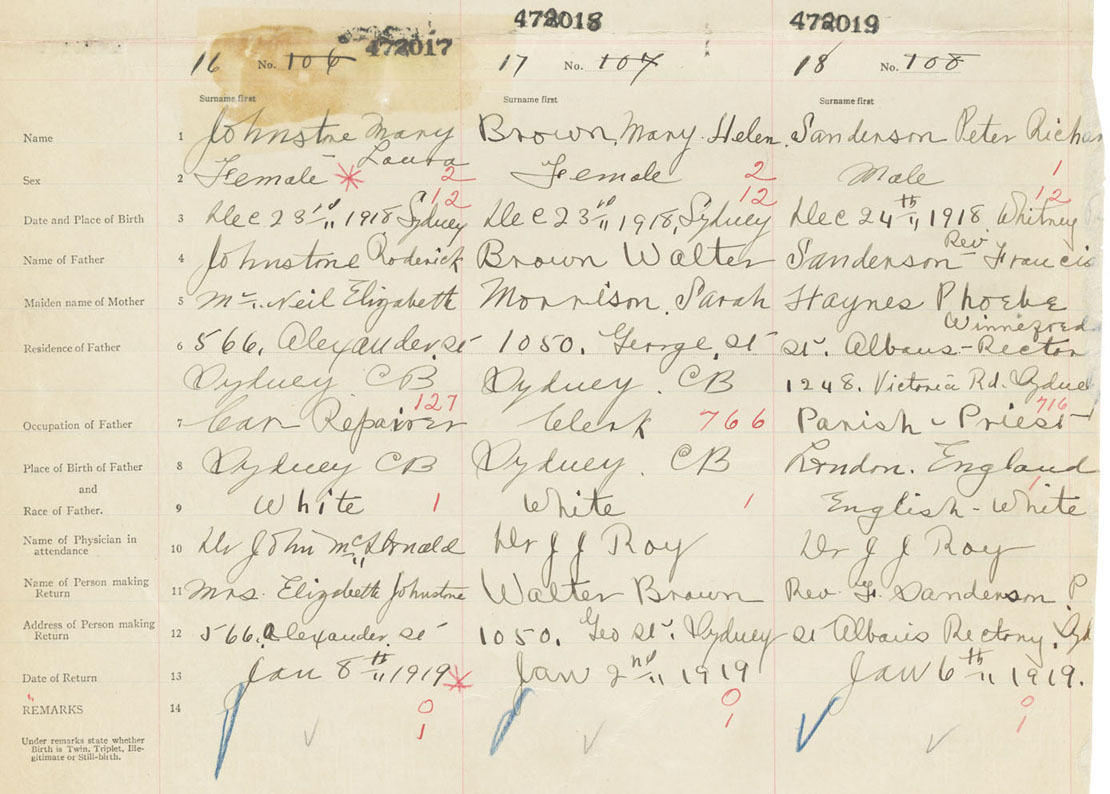 472017 472018 472019
16 No. 106 17 No. 107 18 No. 108
Surname first Surname first Surname first
Name 1 Johnstone Mary Brown, Mary Helen. Sanderson Peter Richar
Laura
Sex 2 Female * 2 Female 2 Male 1
12 12 12
Date and Place of Birth 3 Dec 23rd 1918 Sydney Dec 23rd 1918, Sydney Dec 24th 1918 Whitney
Rev.
Name of Father 4 Johnstone Roderick Brown Walter Sanderson Francis
Maiden name of Mother 5 Mc. Neil Elizabeth Morrison. Sarah Haynes Phoebe
Winnefred
Residence of Father 6 566. Alexander. St 1050. George. St St. Albans-Rector
Sydney CB Sydney. CB 1248. Victoria Rd. Sydne
127 716
Occupation of Father 7 Car Repairer Clerk 766 Parish-Priest
Place of Birth of Father 8 Sydney CB Sydney. CB London. England
and
Race of Father. 9 White 1 White 1 English-White 1
Name of Physician in
attendance 10 Dr John McDonald Dr J J Roy Dr J J Roy
Name of Person making
Return 11 Mrs. Elizabeth Johnstone Walter Brown Rev. F. Sanderson P.
Address of Person making
Return 12 566. Alexander. St 1050. Geo St. Sydney St Albans Rectory. Syd
Date of Return 13 Jan 8th 1919 * Jan 2nd 1919 Jan 6th 1919.
REMARKS 14 0 0 0
1 1 1
Under remarks state whether
Birth is Twin, Triplet, Ille-
gitimate or Still-birth.